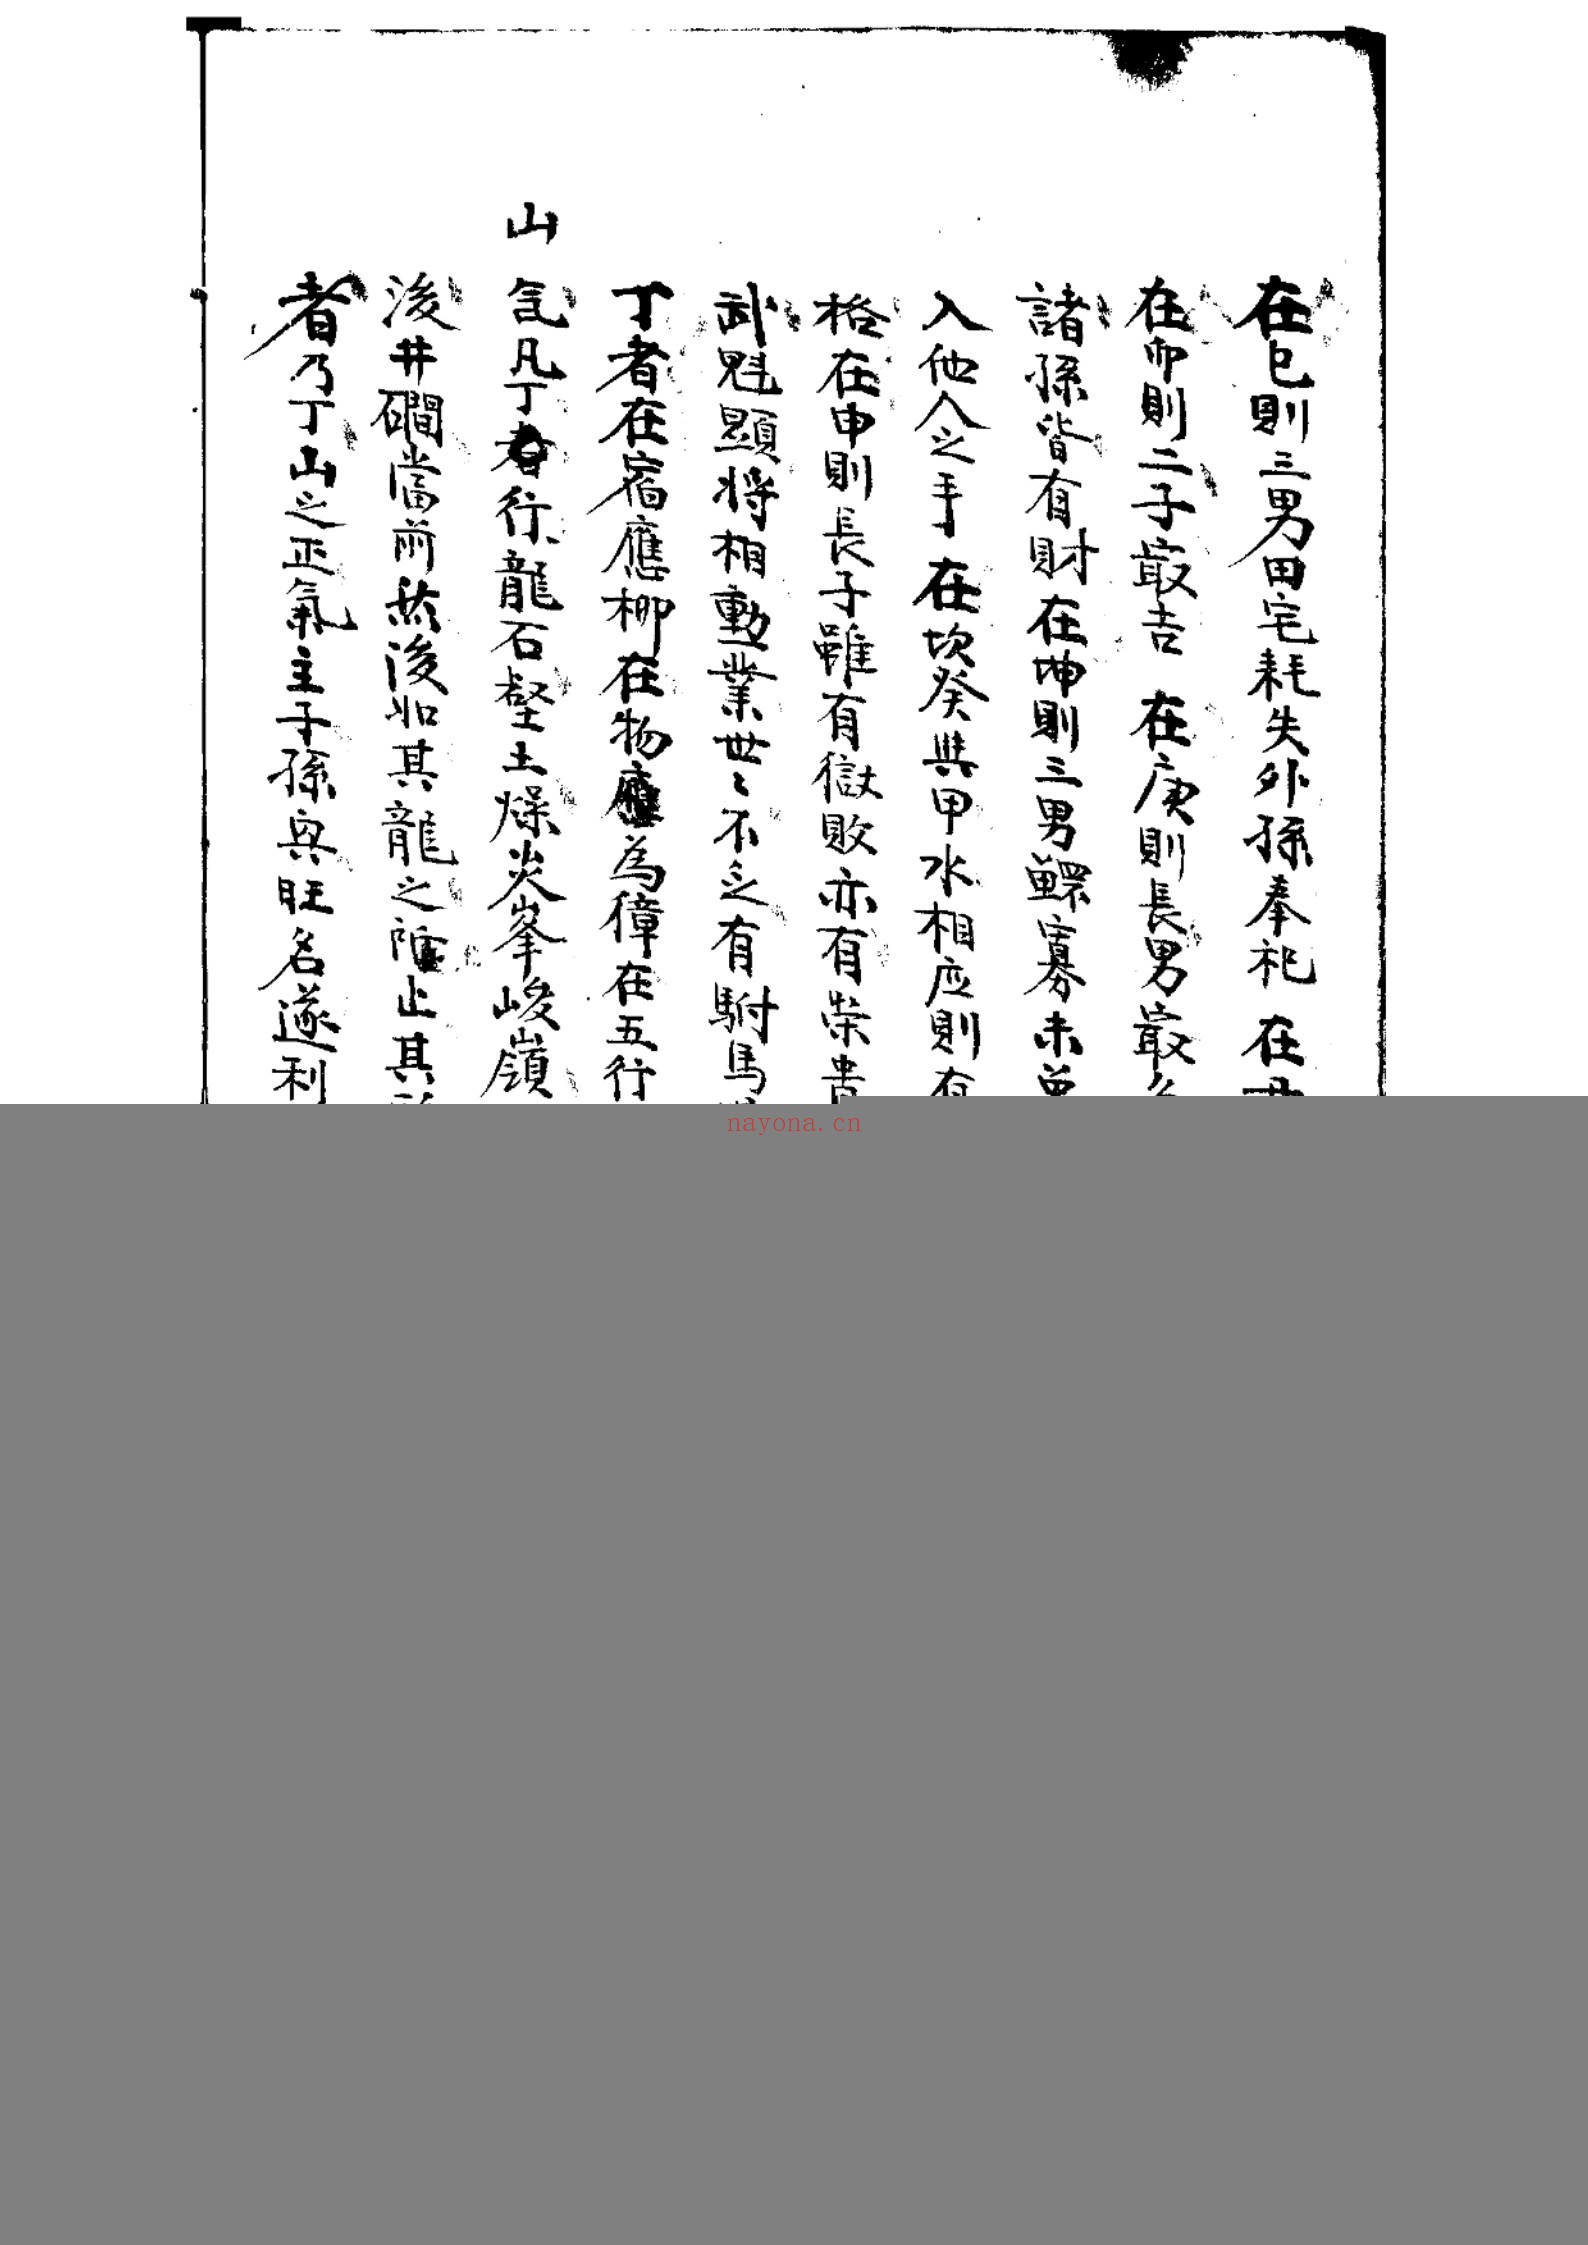 在巳則三男田宅耗失外孫奉祀在
在卯則二子最吉在庚則長男最
諸孫皆有財在坤則三男鰥寡未曾
入他人之手在坎癸與甲水相应則有
格在申則長子雖有獄敗亦有荣貴
武魁顕将相勳業世〻不乏有駙馬
丁者在宿應柳在物應為獐在五行
山
氣凡丁者行龍石壁土燥炎峯峻嶺
後井磵當前然後如其龍之止其
者乃丁山之正氣主子孫興旺名遂利
nayona.cn